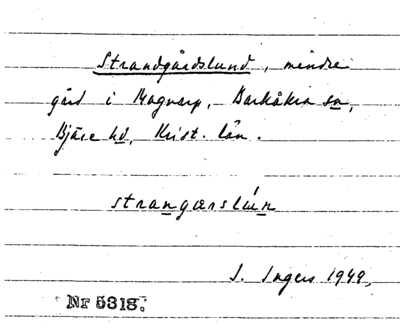 Strandgårdslund, mindre
gård i Magnarp, Barkåkra sn,
Bjäre hd, Krist. län.
strangærslún
I. Ingers 1949.
Nr 5318.